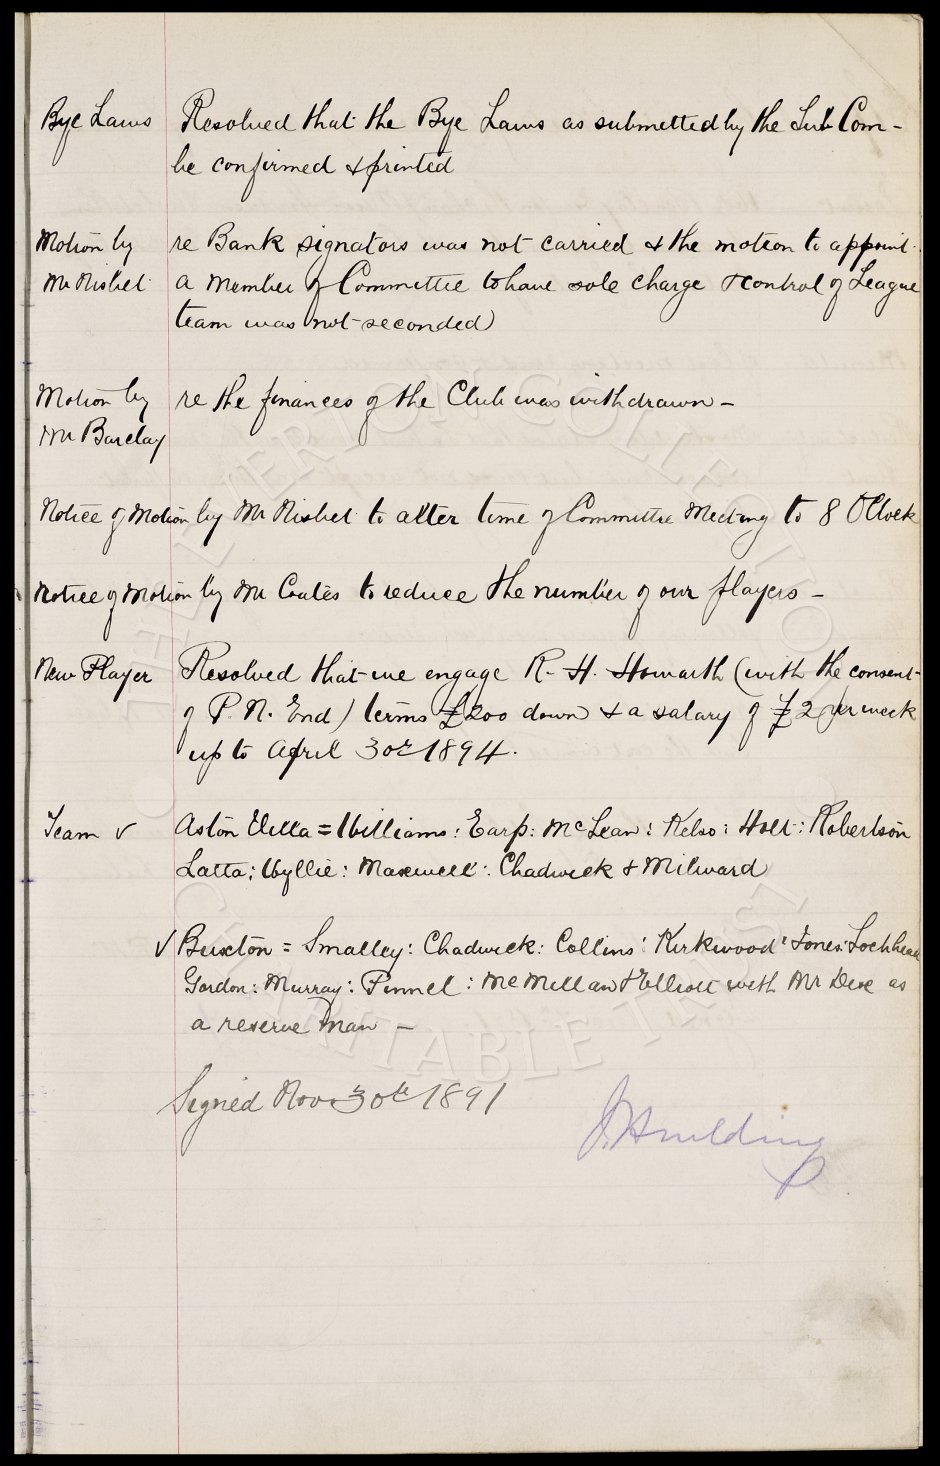 Bye Laws Resolved that the Bye Laws as submitted by the Sub Com-
be confirmed & printed
Motion by re Bank signators was not carried & the motion to appoint
Mr Nisbet a Member of Committee to have sole charge & control of League
team was not seconded
Motion by re the finances of the Club was withdrawn -
Mr Barclay
Notice of Motion by Mr Nisbet to alter time of Committee Meeting to 8 OClock
Notice of Motion by Mr Coates to reduce the number of our players -
New Player Resolved that we engage R. H. Howarth (with the consent
of P. N. End) terms £200 down & a salary of £2 per week
up to April 30th 1894.
Team v Aston Villa = Williams: Earp: McLean: Kelso: Holt: Robertson
Latta: Wyllie: Maxwell: Chadwick & Milward
v Buxton = Smalley: Chadwick: Collins: Kirkwood: Jones: Lochhead
Gordon: Murray: Pinnel: McMillan & Elliott with Mr Dick as
a reserve man -
Signed Nov 30th 1891
THE EVERTON COLLECTION
CHARITABLE TRUST